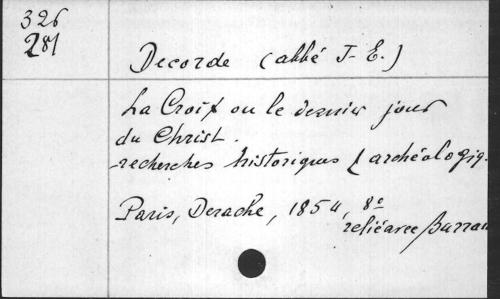 326
281
Decorde (abbé J-E.)
La Croix ou le dernier jour
du Christ.
recherches historiques & archéologiq.
Paris, Derache, 1854, 8º
relié avec Barrau